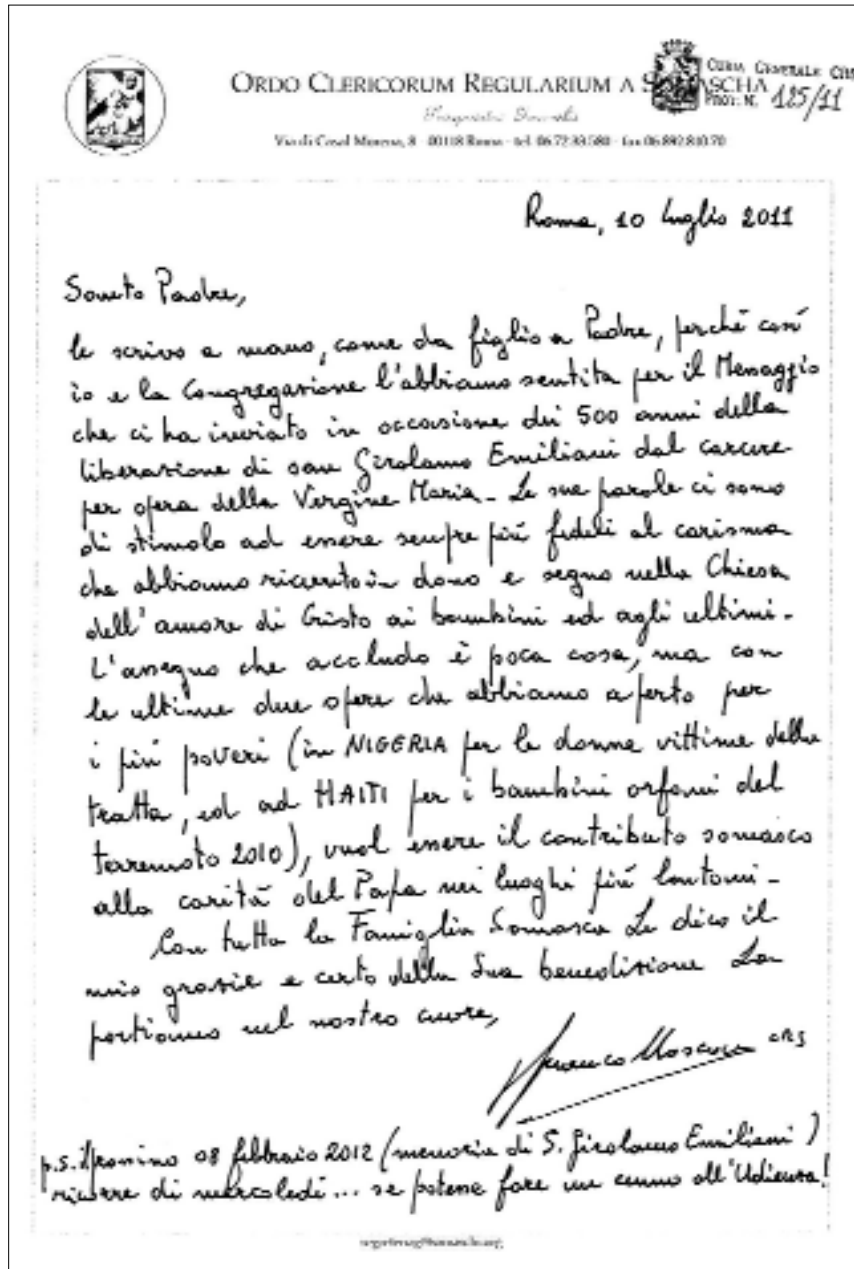 ORDO CLERICORUM REGULARIUM A SOMASCHA
CURIA GENERALE CRS
PROT. N. 125/11
Via di Casal Morena, 8 - 00118 Roma - tel. 06.72.33.580 - fax 06.892.810.70
Roma, 10 luglio 2011
Santo Padre,
le scrivo a mano, come da figlio a Padre, perché così
io e la Congregazione l'abbiamo sentita per il Messaggio
che ci ha inviato in occasione dei 500 anni della
liberazione di san Girolamo Emiliani dal carcere
per opera della Vergine Maria. Le sue parole ci sono
di stimolo ad essere sempre più fedeli al carisma
che abbiamo ricevuto in dono e segno nella Chiesa
dell'amore di Cristo ai bambini ed agli ultimi.
L'assegno che accludo è poca cosa, ma con
le ultime due opere che abbiamo aperto per
i più poveri (in NIGERIA per le donne vittime della
tratta, ed ad HAITI per i bambini orfani del
terremoto 2010), vuol essere il contributo somasco
alla carità del Papa nei luoghi più lontani.
Con tutta la Famiglia Somasca Le dico il
mio grazie e certo della Sua benedizione La
portiamo nel nostro cuore,
Franco Moscone crs
p.s. Il prossimo 08 febbraio 2012 (memoria di S. Girolamo Emiliani)
ricorre di mercoledì... se potesse fare un cenno all'Udienza!